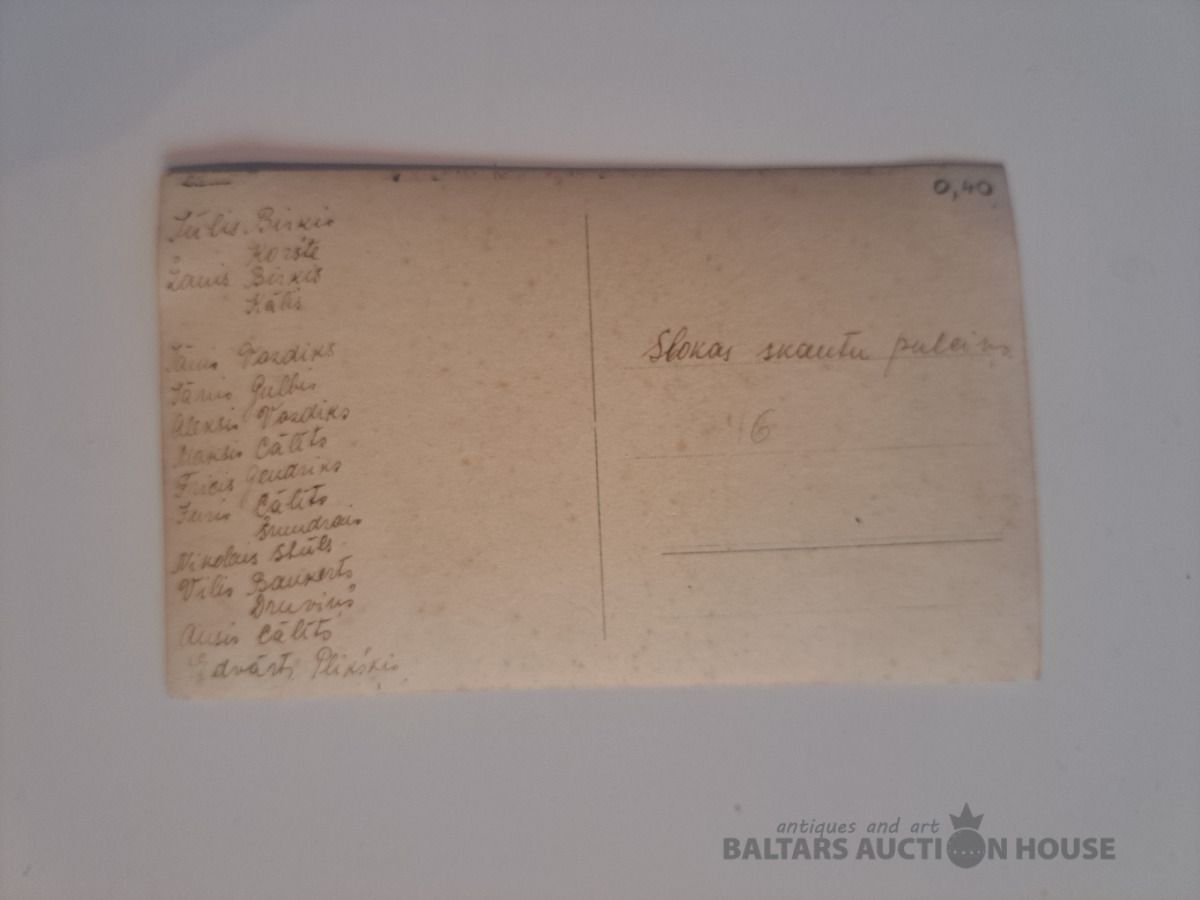 0,40
Jūlis Birkis
Koršte
Žanis Birkis
Kālis
Jānis Vazdiks
Jānis Gulbis
Aleksis Vazdiks
Maksis Cālīts
Fricis Gendriks
Juris Cālīts
Šmudrais
Nikolais Stūls
Vilis Baukerts
Druviņš
Ansis Cālīts
Edvārts Plikškis
Slokas skautu pulciņš
16
antiques and art
BALTARS AUCTION HOUSE